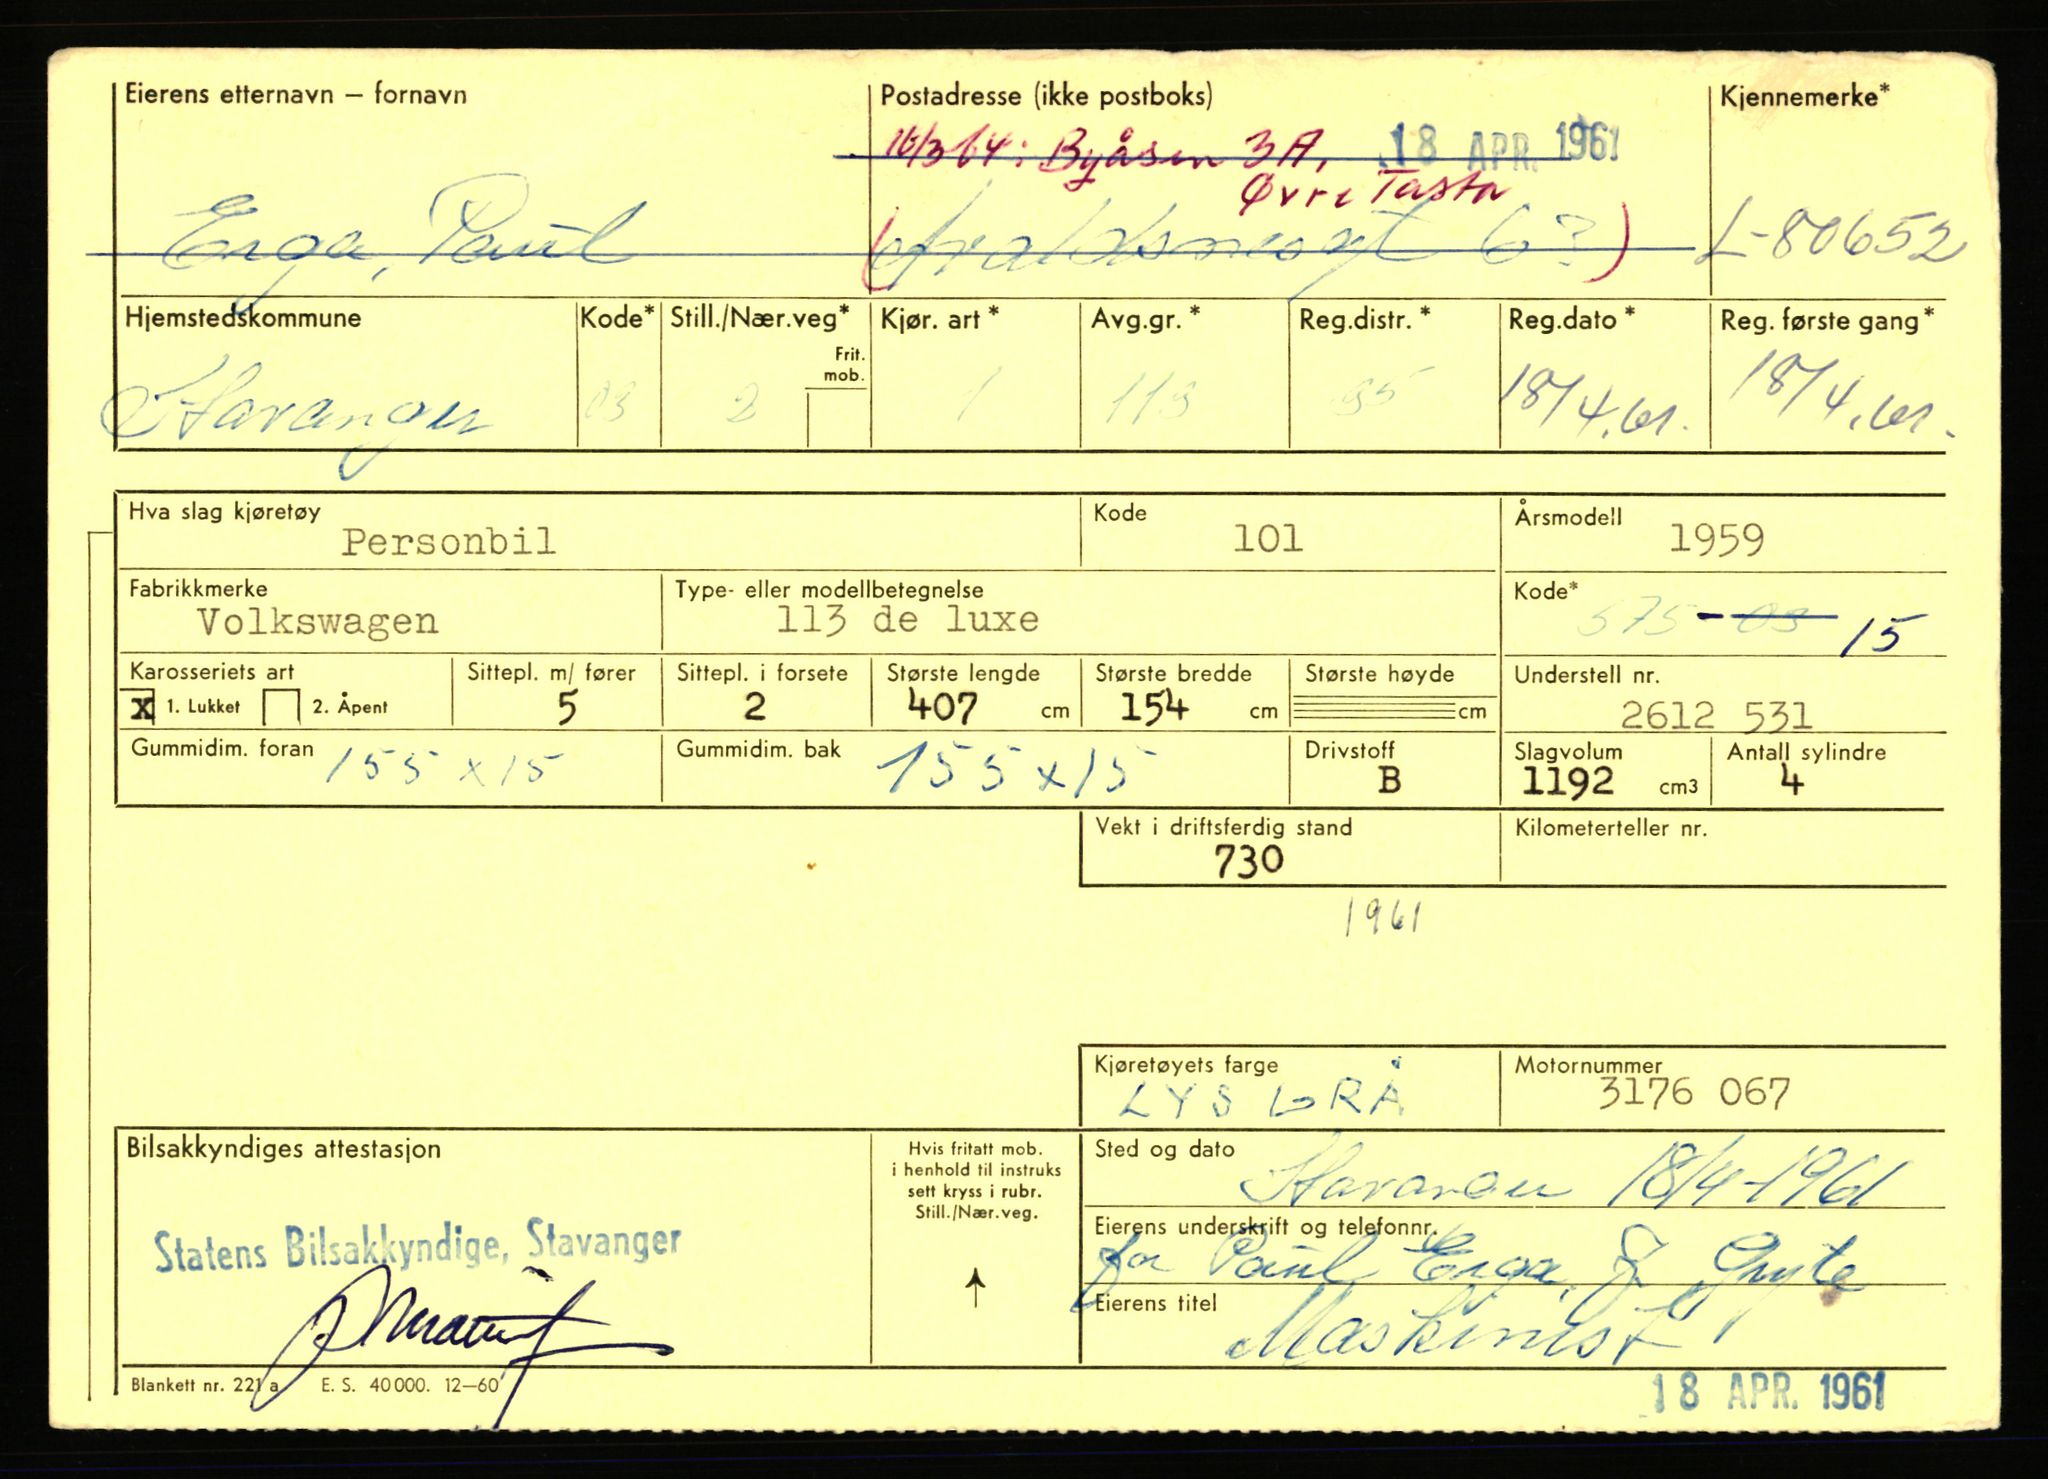 Eierens etternavn – fornavn Postadresse (ikke postboks) Kjennemerke*
16/3 64: Byåsen 3A, 18 APR. 1961
Øvre Tasta
Erga, Paul ( 6 ) L-80652
Hjemstedskommune Kode* Still./Nær.veg* Kjør. art * Avg.gr. * Reg.distr. * Reg.dato * Reg. første gang*
Frit.
mob.
Stavanger 03 2 1 113 95 18/4.61. 18/4.61.
Hva slag kjøretøy Kode Årsmodell
Personbil 101 1959
Fabrikkmerke Type- eller modellbetegnelse Kode*
Volkswagen 113 de luxe 575-03 15
Karosseriets art Sittepl. m/ fører Sittepl. i forsete Største lengde Største bredde Største høyde Understell nr.
x 1. Lukket 2. Åpent 5 2 407 cm 154 cm cm 2612 531
Gummidim. foran 155 x 15 Gummidim. bak 155 x 15 Drivstoff Slagvolum Antall sylindre
B 1192 cm3 4
Vekt i driftsferdig stand Kilometerteller nr.
730
1961
Kjøretøyets farge Motornummer
LYS GRÅ 3176 067
Bilsakkyndiges attestasjon Hvis fritatt mob. Sted og dato
i henhold til instruks
sett kryss i rubr.
Still./Nær.veg.
Stavanger 18/4-1961
Eierens underskrift og telefonnr.
Statens Bilsakkyndige, Stavanger for Paul Erga, Gryte
Eierens titel
Maskinist
Blankett nr. 221 a E. S. 40 000. 12–60
18 APR. 1961